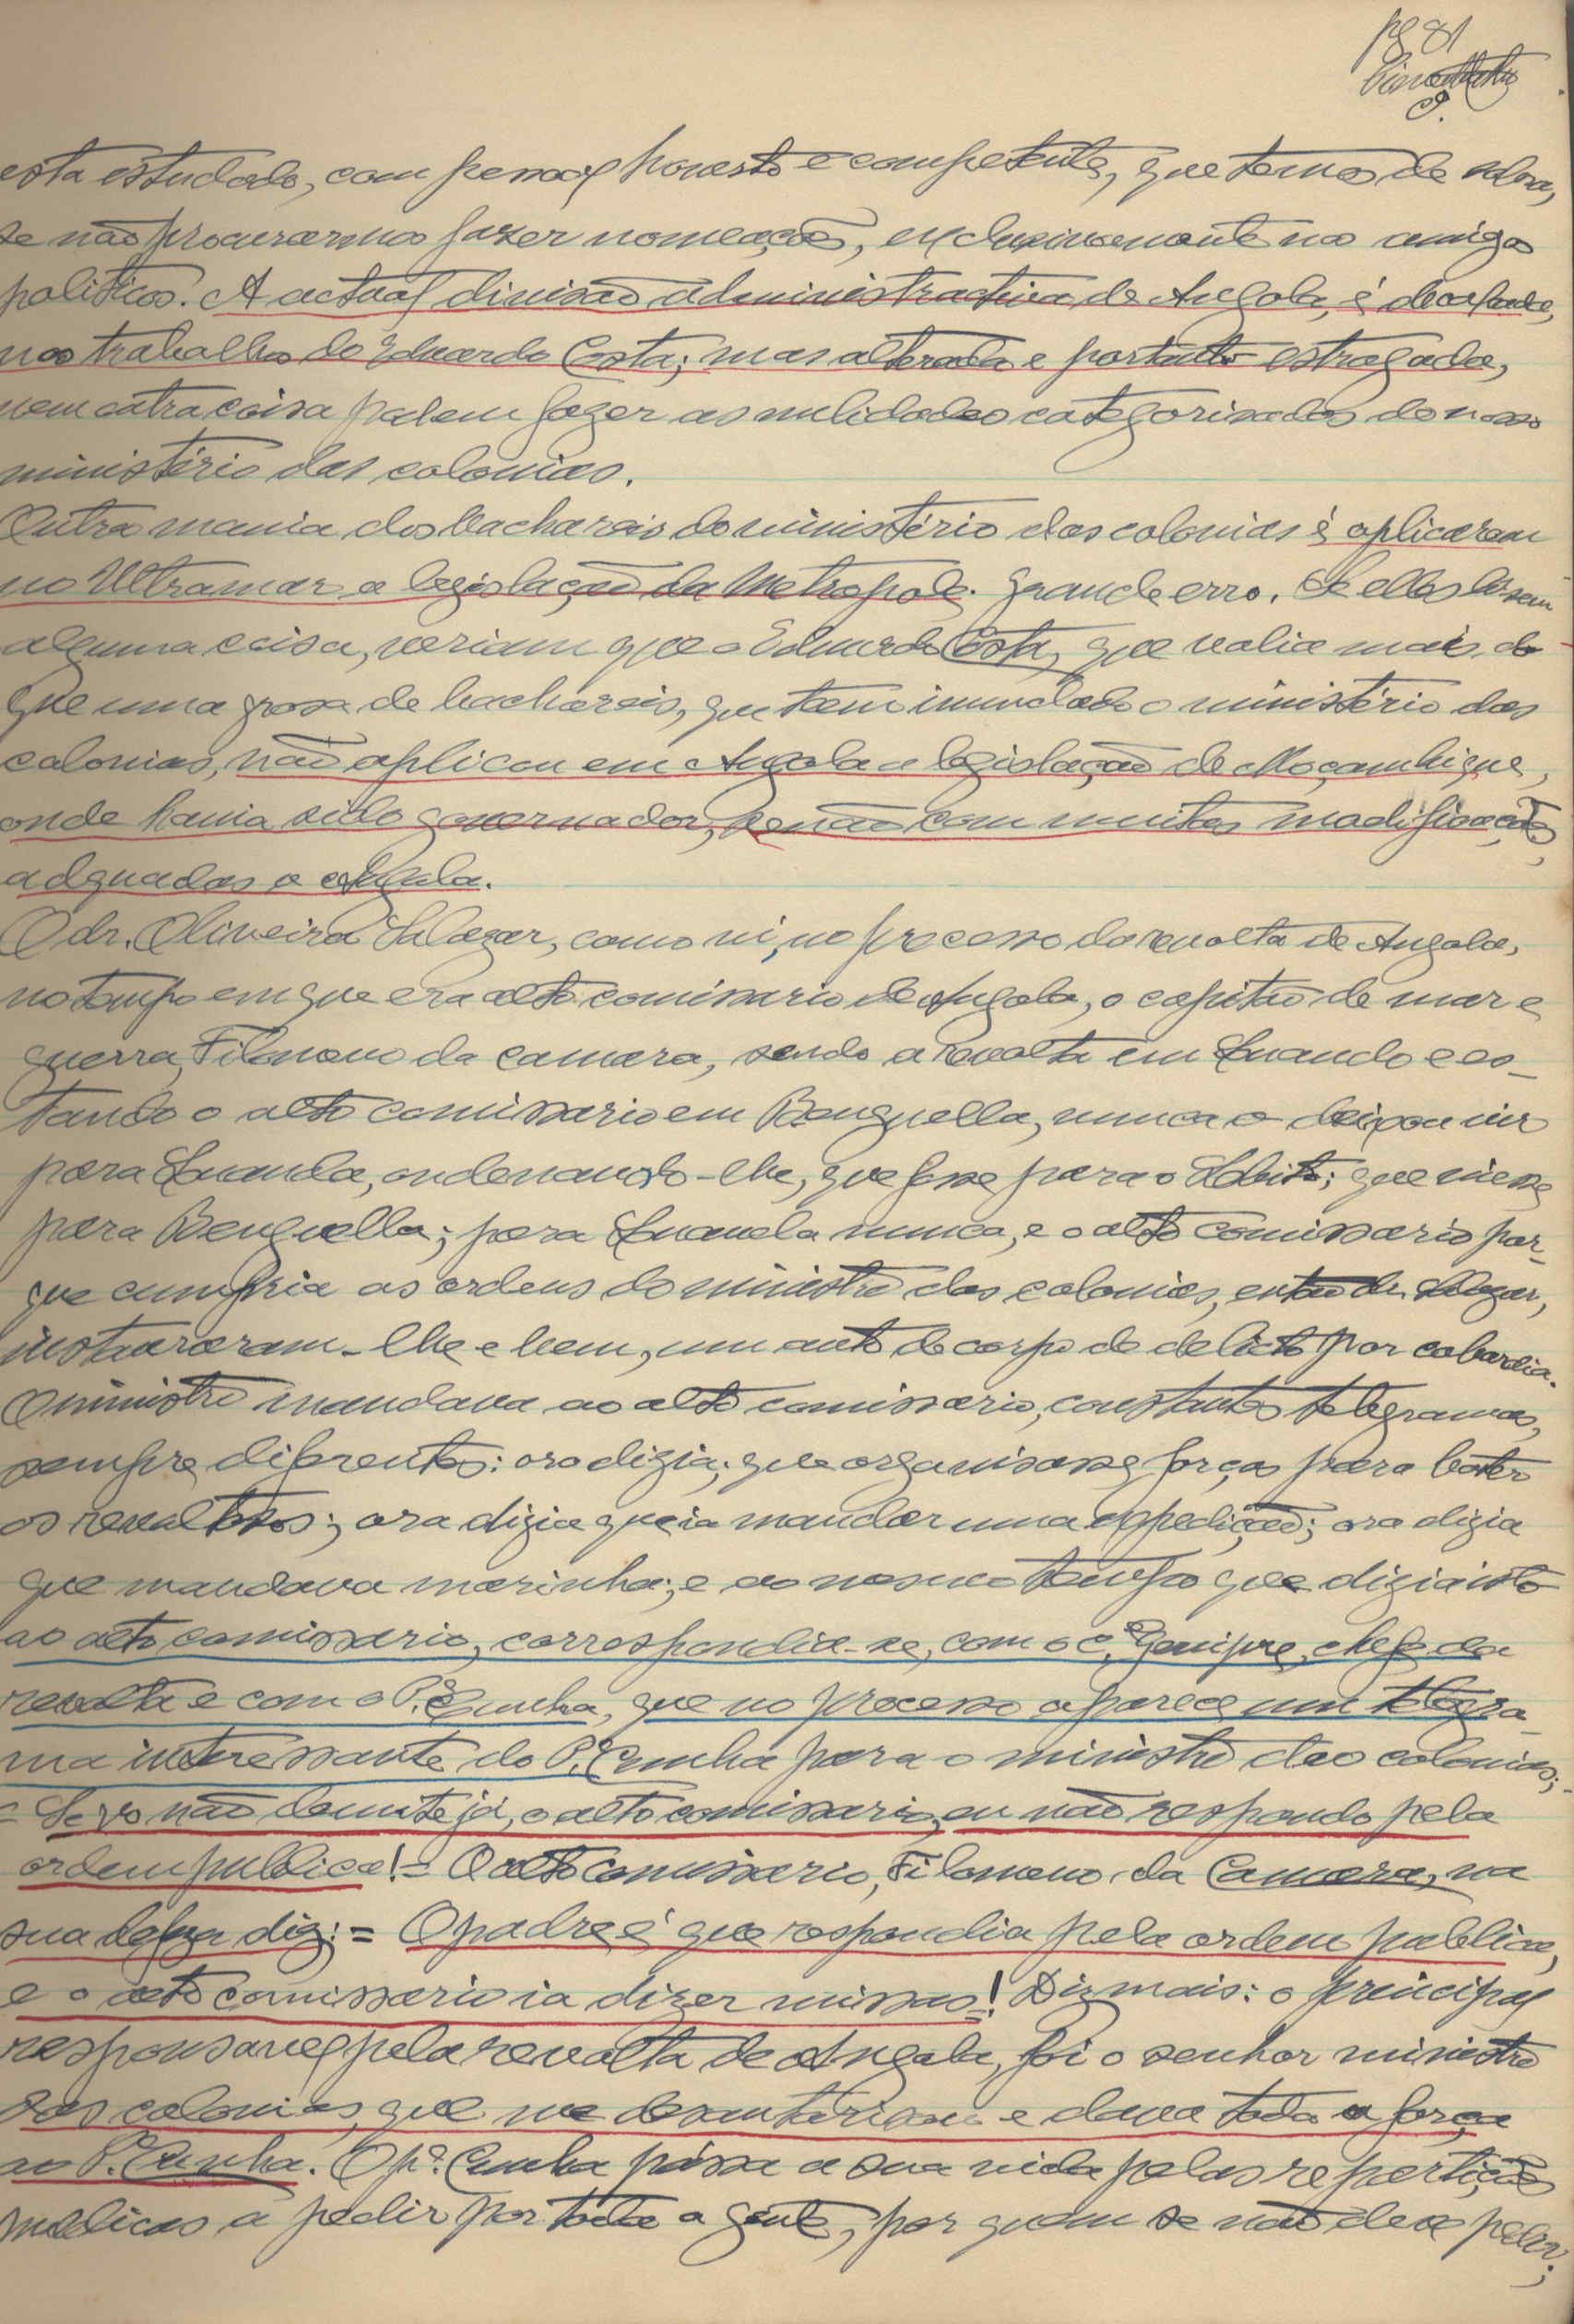 pg 81
esta estudado, com pessoal honesto e competente, que temos de sobra,
se não procurarmos fazer nomeações, exclusivamente nos amigos
politicos. A actual divisão administractiva de Angola, é decalcada,
nos trabalhos do Eduardo Costa; mas alterada e portanto estragada,
nem outra coisa podem fazer as nulidades categorisadas do nosso
ministério das colonias.
Outra mania dos bachareis do ministério das colonias é aplicarem
no Ultramar a legislação da Metropole. Grande erro. Se elles lessem
alguma coisa, veriam que o Eduardo Costa, que valia mais do
que uma grosa de bachareis, que tem inundado o ministério das
colonias, não aplicou em Angola a legislação de Moçambique,
onde havia sido governador, senão com muitas modificações,
adquadas a Angola.
O dr. Oliveira Salazar, como vi, no processo da revolta de Angola,
no tempo em que era alto comissario de Angola, o capitão de mar e
guerra, Filomeno da Camara, sendo a revolta em Luanda e es-
tando o alto comissario em Benguella, nunca o deixou vir
para Luanda, ordenando-lhe, que fosse para o Lobito; que viesse
para Benguella; para Luanda nunca, e o alto comissario por-
que cumpria as ordens do ministro das colonias, então dr. Salazar,
instauraram-lhe e bem, um auto de corpo de delicto por cobardia.
O ministro mandava ao alto comissario, constantes telegramas,
sempre diferentes: ora dizia; que organisasse forças para bater
os revoltosos; ora dizia que ia mandar uma expedição; ora dizia
que mandava marinha; e ao mesmo tempo que dizia isto
ao alto comissario, correspondia-se, com o c.el Genipre, chefe da
revolta e com o P.e Cunha, que no processo aparece um telegra-
ma interessante do P.e Cunha para o ministro das colonias;
= Se vo não demite já, o alto comissario, eu não respondo pela
ordem publica! = O alto comissario, Filomeno da Camara, na
sua defeza diz: = O padre é que respondia pela ordem publica,
e o alto comissario ia dizer missas! Diz mais: o principal
responsavel pela revolta de Angola, foi o senhor ministro
das colonias, que me desautorisou e dava toda a força
ao P.e Cunha. O p.e Cunha passa a sua vida pelas repartições
publicas a pedir por toda a gente, por quem se não deve pedir;